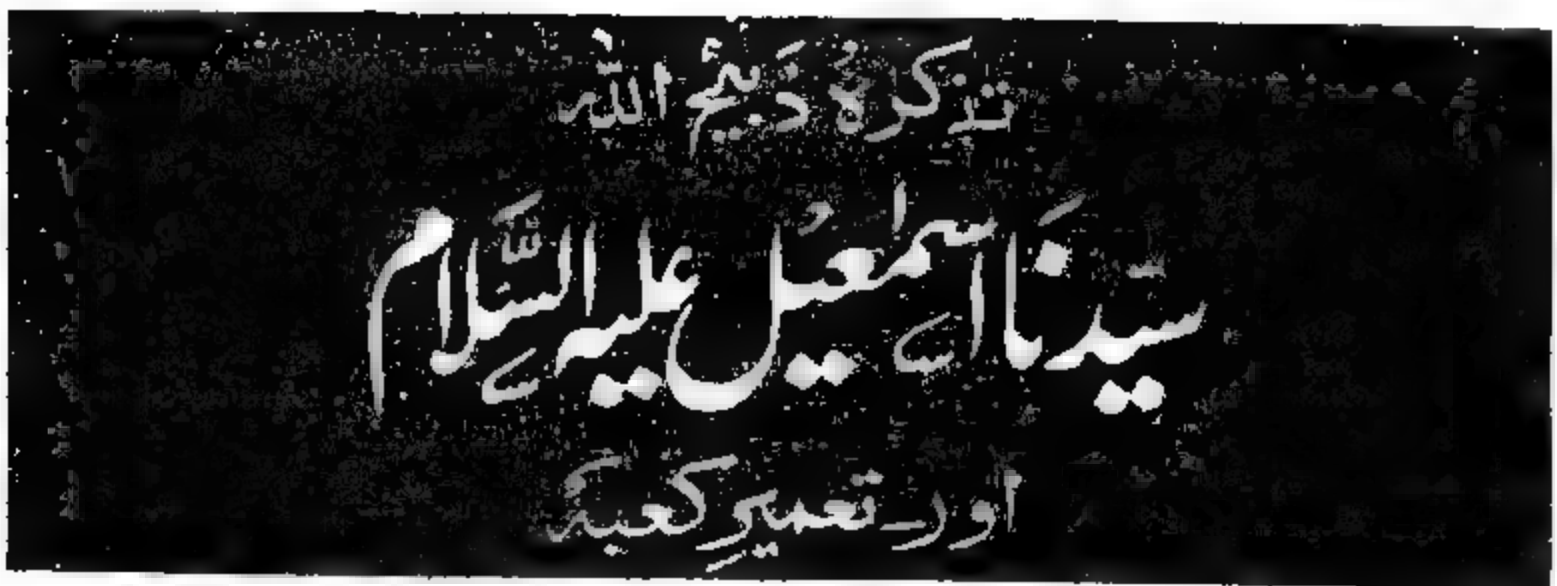 تذکرۂ ذبیح اللہ
سیّدنَا اسمٰعیل علیہ السَّلام
اور تعمیرِ کعبہ